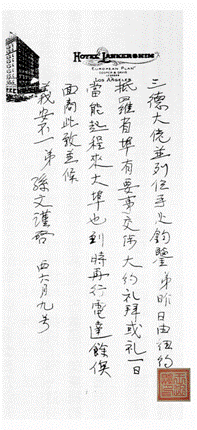 HOTEL LANKERSHIM
EUROPEAN PLAN
LOS ANGELES
三德大佬並列位手足鈞鑒弟昨日由紐約
抵羅省埠有要事交涉大約礼拜或礼一日
當能起程來大埠也到時再行電達餘俟
面商此致並候
義安不一弟孫文謹啓西六月九号